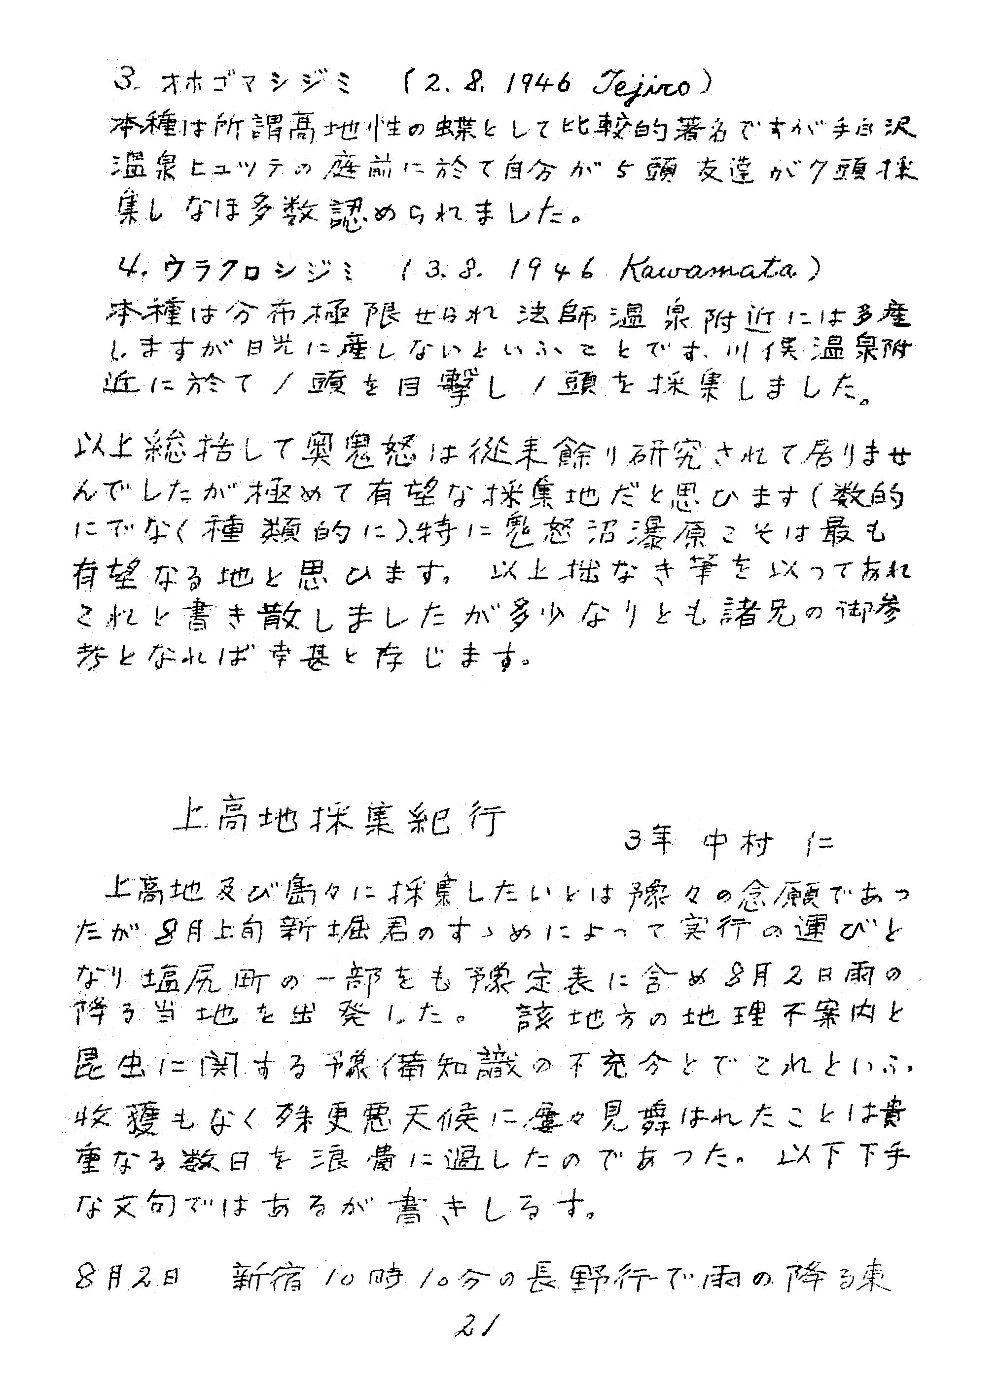 3. オホゴマシジミ (2. 8. 1946 Tejiro)
本種は所謂高地性の蝶として比較的著名ですが手白沢
温泉ヒュッテの庭前に於て自分が5頭友達が7頭採
集しなほ多数認められました。
4. ウラクロシジミ (3. 8. 1946 Kawamata)
本種は分布極限せられ法師温泉附近には多産
しますが日光に産しないといふことです、川俣温泉附
近に於て1頭を目撃し1頭を採集しました。
以上総括して奥鬼怒は従来余り研究されて居りませ
んでしたが極めて有望な採集地だと思ひます(数的
にでなく種類的に)、特に鬼怒沼湿原こそは最も
有望なる地と思ひます。以上拙なき筆を以つてあれ
これと書き散しましたが多少なりとも諸兄の御参
考となれば幸甚と存じます。
上高地採集紀行
3年 中村 仁
上高地及び島々に採集したいとは豫々の念願であつ
たが8月上旬新堀君のすゝめによつて実行の運びと
なり塩尻町の一部をも豫定表に含め8月2日雨の
降る当地を出発した。該地方の地理不案内と
昆虫に関する豫備知識の不充分とでこれといふ
收獲もなく殊更悪天候に屢々見舞はれたことは貴
重なる数日を浪費に過したのであつた。以下下手
な文句ではあるが書きしるす。
8月2日 新宿10時10分の長野行で雨の降る東
21